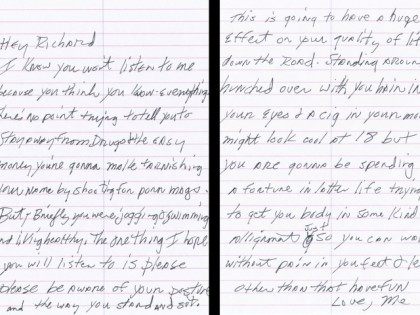 Hey Richard
I know you won't listen to me
because you think you know everything
there's no point trying to tell you to
Stay away from Drugs & the EASY
money you're gonna make tarnishing
your name by shooting for porn mags.
But, Briefly you were jogging
and
The one thing I hope
you will listen to is please
please be aware of your posture
and the way you stand and sit.
This is going to have a huge
Effect on your quality of life
down the Road. Standing around
hunched over with you hair in
your Eyes & A cig in your mouth
might look cool at 18 but
you ARE gonna be spending
a fortune in later life trying
to get you body in some kind
Allignment just so you can walk
without pain in you feet & legs
other than that have fun
Love, Me